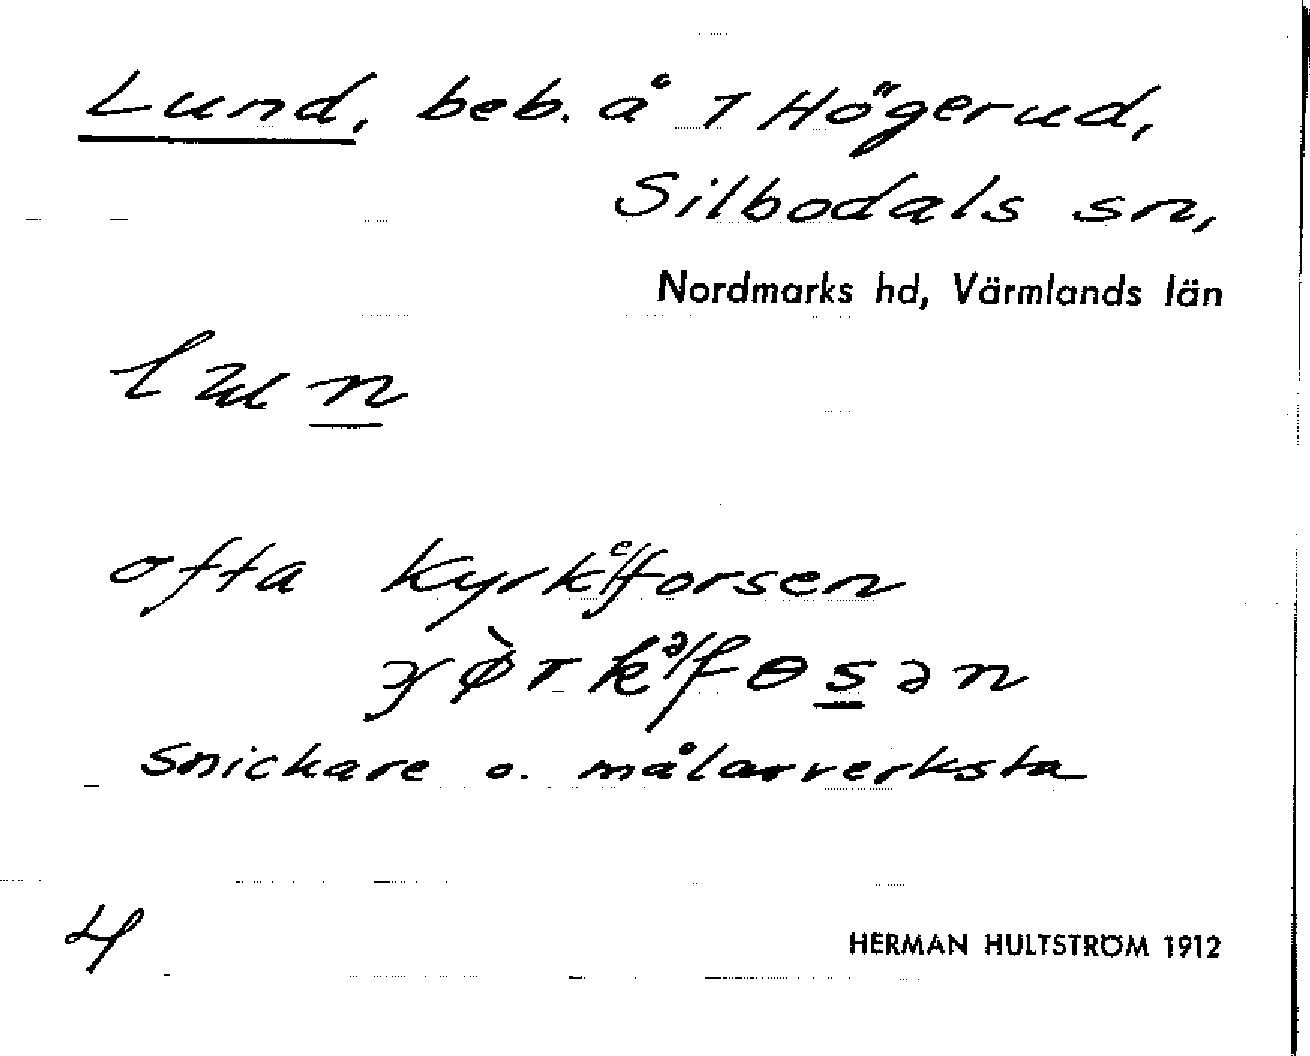 Lund, beb. å 1 Högerud,
Silbodals sn,
Nordmarks hd, Värmlands län
lun
ofta Kyrkeforsen
snickare o. målarverksta
4
HERMAN HULTSTRÖM 1912